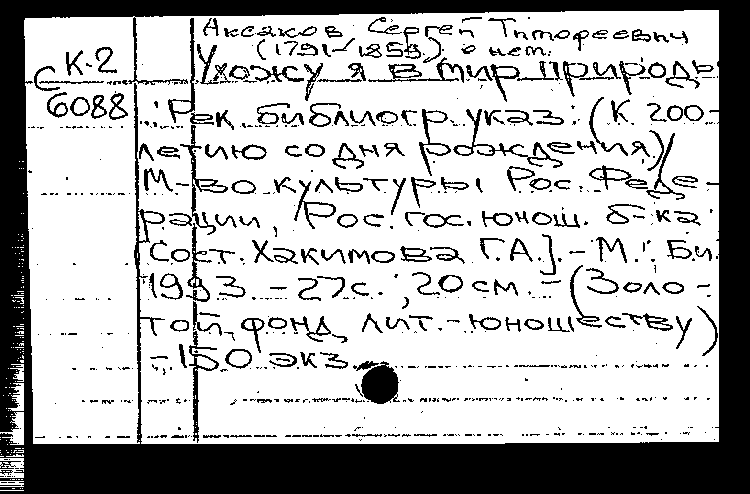 Аксаков Сергей Тимофеевич
(1791-1859) о нем.
К-2
Ухожу я в мир природы
С
6088
: Рек. библиогр. указ: (К 200-
летию со дня рождения)/
М-во культуры Рос. Феде-
рации, Рос. гос. юнош. б-ка
[Сост. Хакимова Г.А.]. - М.: Би.
1993. - 27с.; 20 см. - (Золо-
той фонд лит. - юношеству)
- 150 экз.